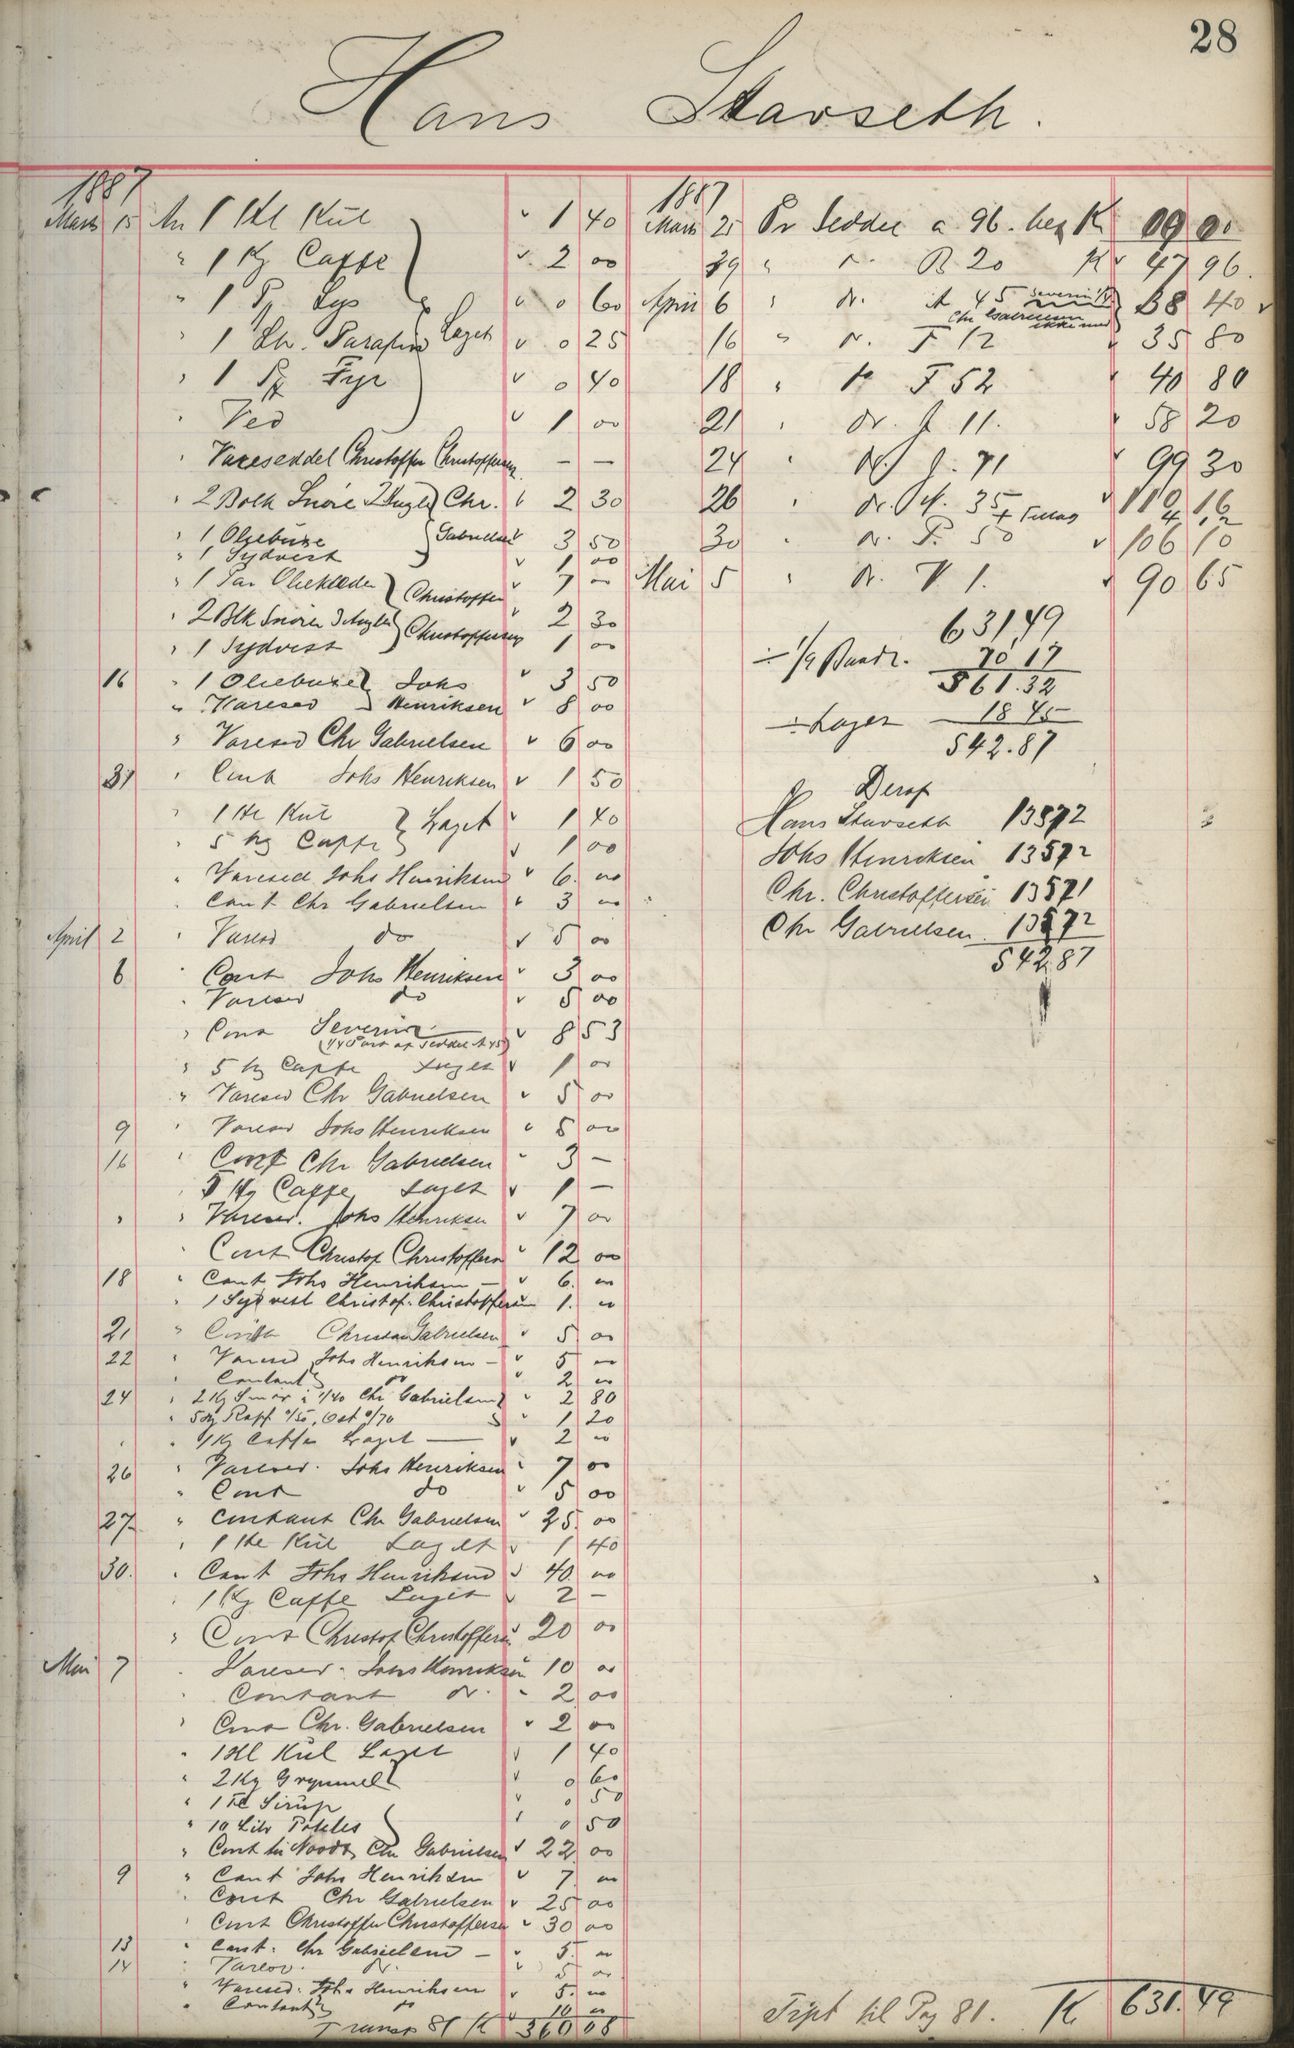 28
Hans Stavseth.
1887
Mars 15 An 1 Hl Kül " 1 40
" 1 Kg Caffe 2 00
" 1 Pk Lys 0 60
" 1 Ltr. Parafin Laget 0 25
" 1 Pk Fyr 0 40
" Ved 1 00
" Vareseddel Christoffer Christoffersen — —
" 2 Bolk Snöre 2 Angl Chr. 2 30
" 1 Oliebuxe Gabrielsen 3 50
" 1 Sydvest 1 00
" 1 Par Olieklæder Christoffer 7 —
" 2 Blk Snöre 3 Angler Christoffersen 2 30
" 1 Sydvest 1 00
16 " 1 Oliebuxe Johs 3 50
" Varesed Henriksen 8 00
" Varesed Chr Gabrielsen 6 00
31 " Cont Johs Henriksen 1 50
" 1 Hl Kül Laget 1 40
" 5 hg Caffe 1 00
" Varesed Johs Henriksen 6. 00
" Cont Chr Gabrielsen 3 00
April 2 " Varesed do 5 00
6 " Cont Johs Henriksen 3 00
" Varesed do 5 00
" Cont Severin 8 53
(1/4 Part af Seddel A 45)
" 5 hg Caffe Laget 1 00
" Varesed Chr Gabrielsen 5 00
9 " Varesed Johs Henriksen 5 00
16 " Cont Chr Gabrielsen 3 —
" 5 Hg Caffe Laget 1 —
" " Varesed. Johs Henriksen 7 00
" Cont Christof Christoffersen 12 00
18 " Cont Johs Henriksen — 6. 00
" 1 Sydvest Christof. Christoffersen 1. 00
21 " Cont Christian Gabrielsen 5 00
22 " Varesed Johs Henriksen — 5 00
" Contant do 2 00
24 " 2 Kg Smör à 1/40 Chr Gabrielsen 2 80
" 5 Hg Kaff 0/50, Ost 0/70 1 20
" " 1 Kg Caffe Laget — 2 00
26 " Varesed. Johs Henriksen 7 00
" Cont do 5 00
27 " Contant Chr Gabrielsen 25. 00
" 1 Hl Kül Laget 1 40
30. " Cont Johs Henriksen 40 00
" 1 Kg Caffe Laget 2 —
" Cont Christof Christoffersen 20 00
Mai 7 " Varesed. Johs Henriksen 10 00
" Contant do. 2 00
" Cont Chr. Gabrielsen 2 00
" 1 Hl Kül Laget 1 40
" 2 Kg Grynmel 0 60
" 1 Sirup 0 50
" 10 Litr Poteter 0 50
" Cont Chr Gabrielsen 22 00
9 " Cont Johs Henriksen 7 00
" Cont Chr Gabrielsen 25 00
" Cont Christoffer Christoffersen 30 00
13 " Cont. Chr Gabrielsen — 5. 00
14 " Varesed. do. 5 00
" Varesed. Johs Henriksen 5. 00
" Contant do 10 00
Transp 81 K 360 08
1887
Mars 25 Pr Seddel a 96. K 09 00
29 " do. B 20 K 47 96.
April 6 " do. A 45 Severin 38 40
Chr Gabrielsen ikke med
16 " do. F 12 35 80
18 " do F 52 40 80
21 " do. J 11. 58 20
24 " do. J. 71 99 30
26 " do. M. 35 110 16
+ Tillæg 4 12
30 " do. P. 50 106 10
Mai 5 " do. V 1. 90 65
631,49
÷ 1/9 Baadl. 70 17
561.32
÷ Laget 18 45
542.87
Deraf
Hans Stavseth 135 72
Johs Henriksen 135 72
Chr. Christoffersen 135 71
Chr Gabrielsen. 135 72
542 87
Tspt til Pag 81. K 631.49